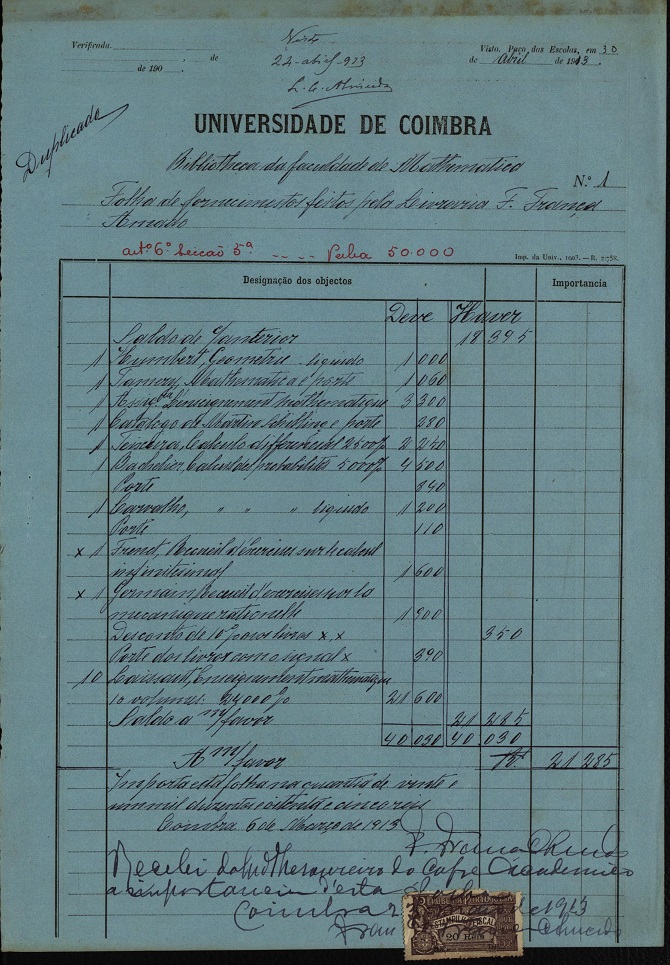 Verificada
de
de 190
Visto
24-abril-913
L. C. Almeida
Visto. Paço das Escolas, em 30
de Abril de 1913.
Duplicado
UNIVERSIDADE DE COIMBRA
Bibliotheca da faculdade de Mathematica
N.º 1
Folha de fornecimentos feitos pela Livraria F. França
Amado
artº 6º Secção 5ª .... Verba 50.000
Imp. da Univ., 1903.—R. 2:758.
Designação dos objectos Importancia
Deve Haver
Saldo de anterior 18 395
1 Humbert, Geometrie liquido 1 000
1 Tannery, Mathematica e porte 1 060
1 L'enseignement mathematique 3 300
1 Catalogo de Martin Schilling e porte 280
1 Teixeira, Calculo differencial 2500 2 250
1 Bachelier, Calcul des probabilités 5000 4 500
Porte 840
1 Carvalho, " " " liquido 1 200
Porte 110
x 1 Frenet, Recueil d'Exercises sur le calcul
infinitesimal 1 600
x 1 Germain, Recueil d'exercises sur la
mecanique rationelle 1 900
Desconto de 10% nos livros x, x 350
Porte dos livros com o signal x 390
10 Enseignement mathematique
10 volumes. 24000 21 600
Saldo a m/favor 21 285
40 030 40 030
A m/favor 21 285
Importa esta folha na quantia de vinte e
um mil duzentos e oitenta e cinco reis
Coimbra 6 de Março de 1913
F. França Amado
Recebi do Thesoureiro do Cofre Academico
a importancia d'esta
Coimbra de 1913
ESTAMPILHA FISCAL
20 REIS